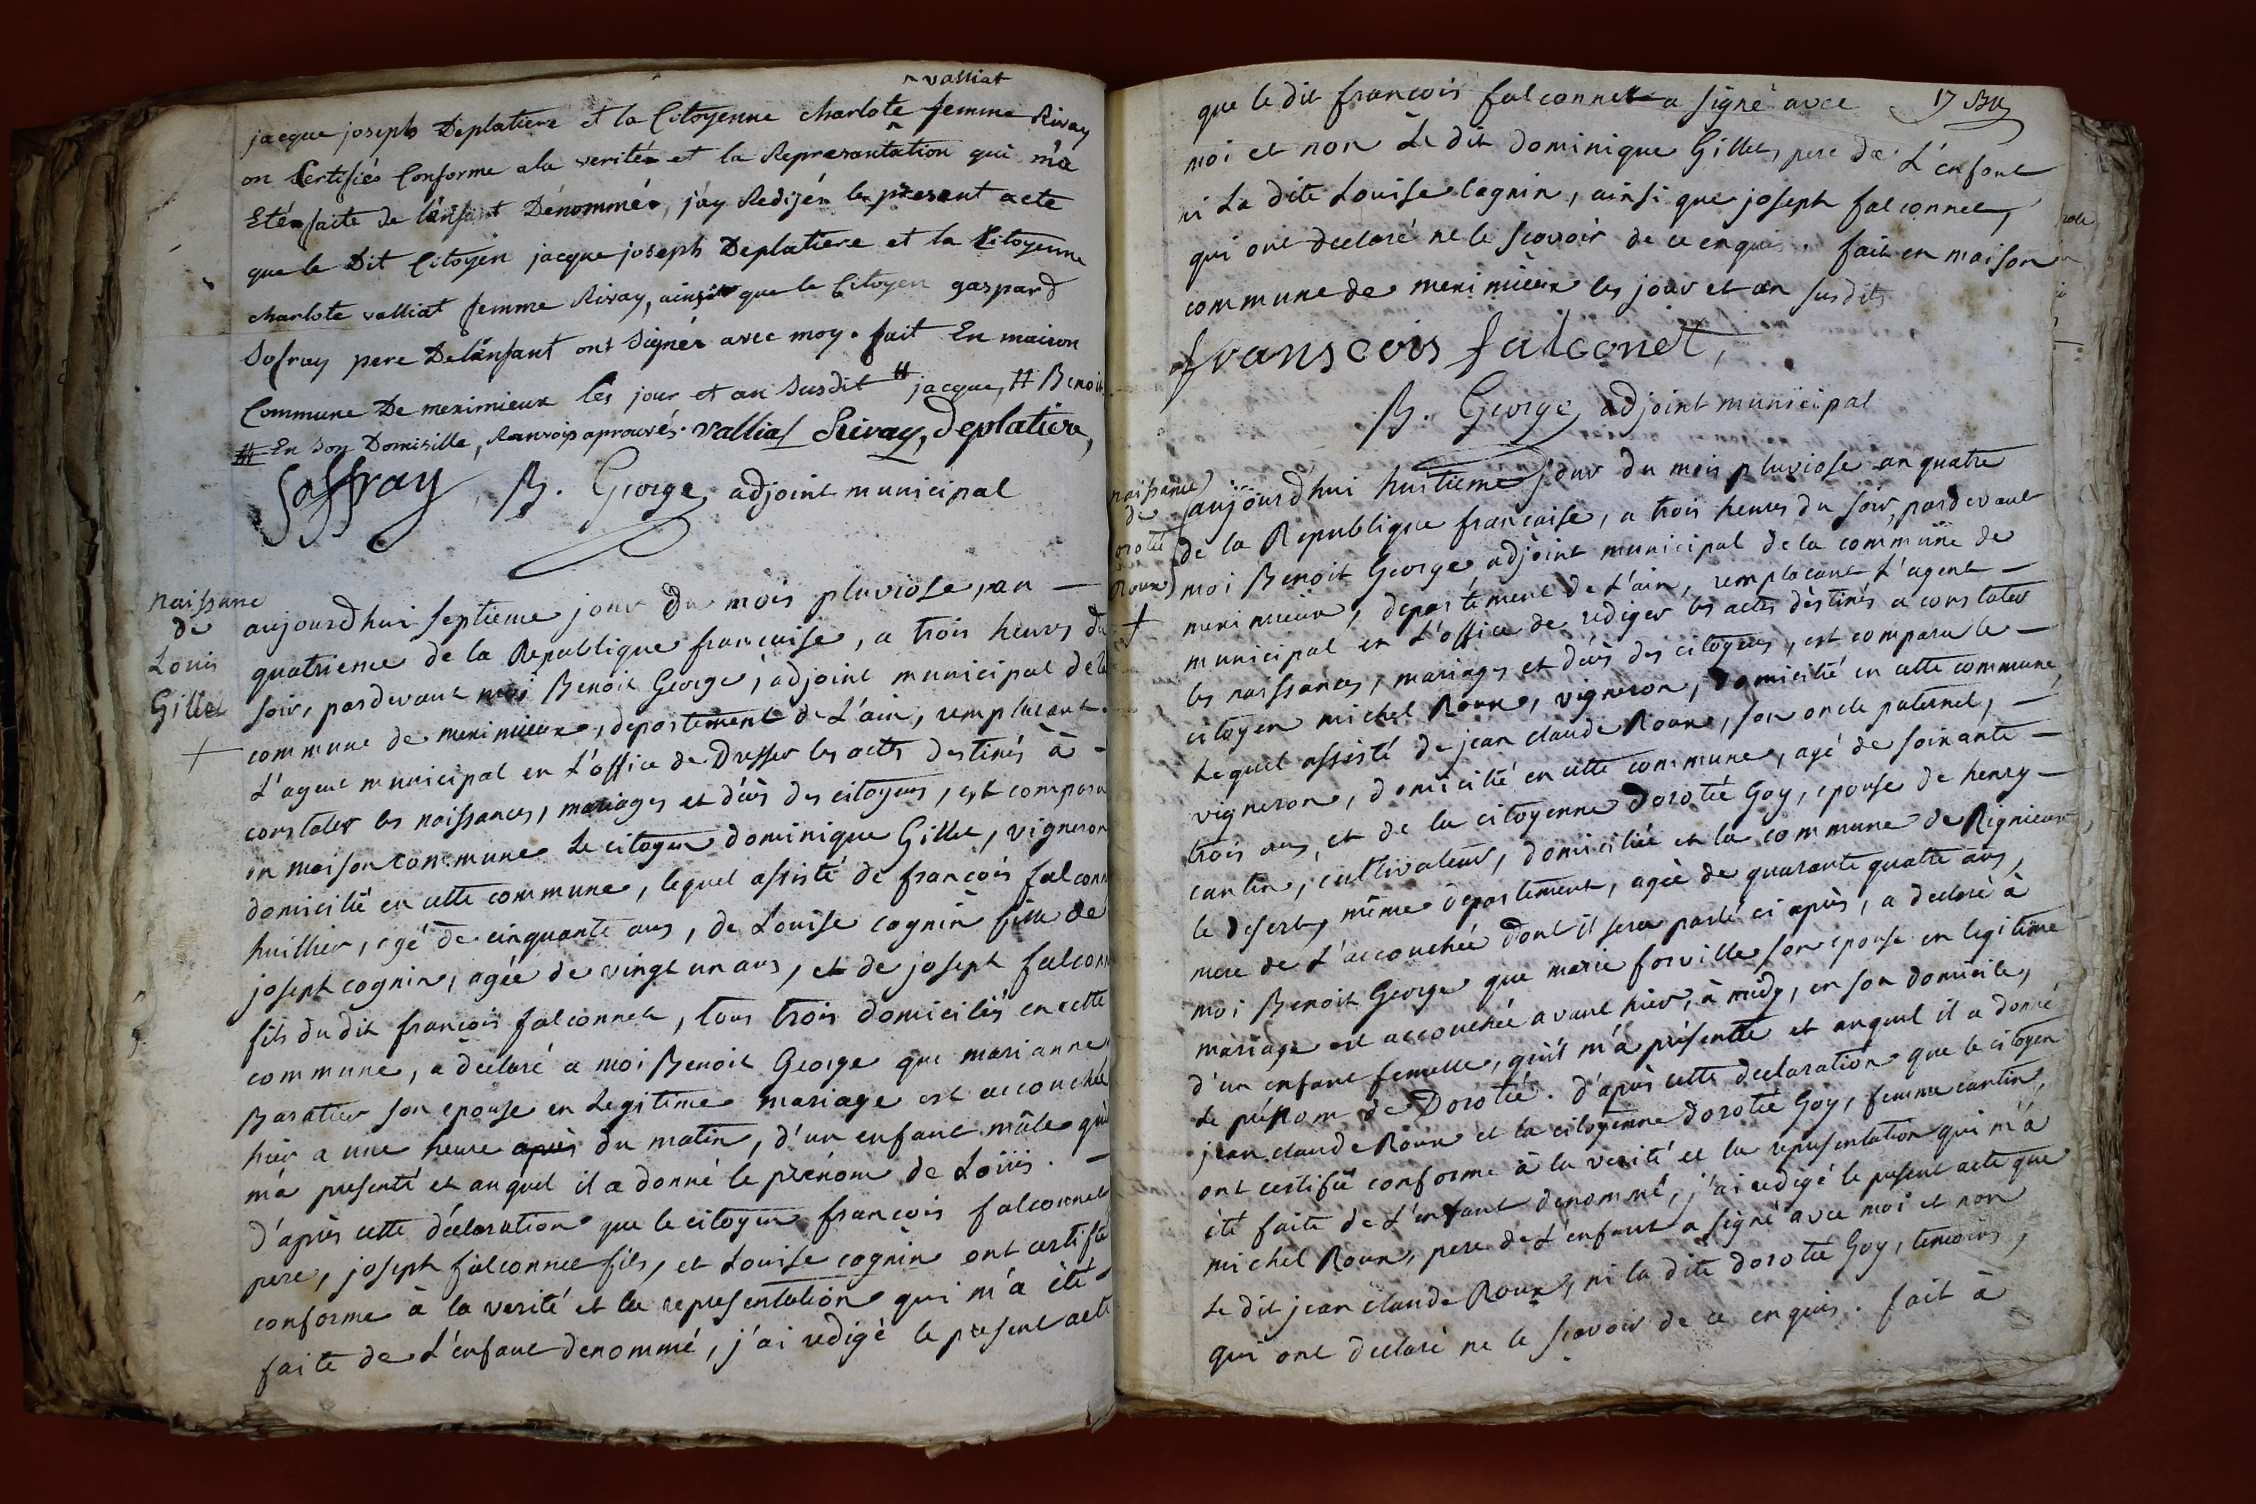 ^ valliat
jacque joseph Deplatiere et la Citoyenne charlote ^ femme Rivay
on Certifiés Conforme ala verité et la Represantation qui m'a
Eté faite de l'ensant Dénommée, j'ay Redijén le present acte
que le Dit Citoyen jacque joseph Deplatiere et la Citoyenne
charlote valliat femme Rivay, ainsi que le Citoyen gaspard
Sofray pere De lansant ont Signér avec moy. fait En maison
Commune De meximieux les jour et an Susdit # jacque, # Benoit
# En Son Domisille, Ranvois aprouvés. valliat Rivay, deplatiere,
Soffray, B. George, adjoint municipal
naissance
de
Louis
Gillet
+
aujourdhui septieme jour du mois pluviose, an —
quatrieme de la Republique francaise, a trois heures du
soir, pardevant moi Benoit George, adjoint municipal dela
commune de meximieux, departement de L'ain, remplacant
L'agent municipal en L'office de Dresser les actes destinés à —
constater les naissances, mariages et décès des citoyens, est comparu
en maison commune Le citoyen dominique Gillet, vigneron
domicilié en cette commune, lequel assisté de francois falconn
huillier, agé de cinquante ans, de Louise cognin fille de
joseph cognin, agée de vingt un ans, et de joseph falconn
fils du dit francois falconnet, tous trois domiciliés en cette
commune, a déclaré a moi Benoit George que marianne
Baratier son epouse en Legitime mariage est accouchée
hier a une heure après du matin, d'un enfant mâle qu'il
m'a presenté et auquel il a donné le prénom de Loüis. —
D'après cette déclaration que le citoyen francois falconnet
pere, joseph falconnet fils, et Louise cognin ont certifié
conforme à la verité et la representation qui m'a été
faite de L'enfant denommé, j'ai redigé le present acte
17
que le dit francois falconnet a signé avec
moi et non Le dit dominique Gillet, pere de L'enfant
ni La dite Louise cognin, ainsi que joseph falconnet,
qui ont declaré ne le scavoir de ce enquis. fait en maison
commune de meximieux les jour et an susdits
franscois falconet,
B. George, adjoint municipal
naissance
de
orotée
Roux
+
aujourdhui huitieme jour du mois pluviose an quatre
de la Republique francaise, a trois heures du soir, pardevant
moi Benoit George adjoint municipal de la commune de
meximieux, departement de L'ain, remplacant L'agent —
municipal en L'office de rediger les actes déstinés a constater
les naissances, mariages et décès des citoyens, est comparu le —
citoyen michel Roux, vigneron, domicilié en cette commune,
Lequel assisté de jean claude Roux, son oncle paternel, —
vigneron, domicilié en cette commune, agé de soixante —
trois ans, et de la citoyenne Dorotée Goy, epouse de henry —
cantin, cultivateur, domiciliée en la commune de Rignieux
le desert, même département, agée de quarante quatre ans,
mere de L'accouchée dont il sera parlé ci après, a declaré à
moi Benoit George que marie forville son epouse en legitime
mariage est accouchée avant hier, à midy, en son domicile,
d'un enfant femelle, qu'il m'a présenté et auquel il a donné
Le prénom de Dorotée. D'après cette declaration que le citoyen
jean claude Roux et la citoyenne dorotée Goy, femme cantin,
ont certifié conforme à la verité et la representation qui m'a
été faite de L'enfant denommé, j'ai redigé le present acte que
michel Roux, pere de L'enfant a signé avec moi et non
Le dit jean claude Roux, ni la dite dorotée Goy, temoins,
qui ont declaré ne le scavoir de ce enquis. fait à